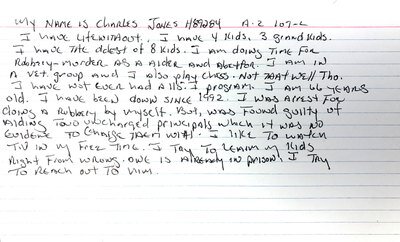 My Name is Charles Jones H89284 A-2 107-L
I have LifeWithout. I have 4 Kids. 3 grand Kids.
I have the oldest of 8 Kids. I am doing Time for
Robbery-murder As a Aider and Abettor. I am in
A vet. group and I also play chess. Not That well Tho.
I have Not ever had A 115. I program. I am 66 years
old. I have been down since 1992. I was Arrest for
doing a Robbery by myself. But, was found guilty of
Aiding Two uncharged principals which it was No
Evidence To Charge Them with. I like To watch
T.V in my Free Time. I Try To learn my Kids
Right From wrong. one is Already in prison. I Try
To Reach out To him.